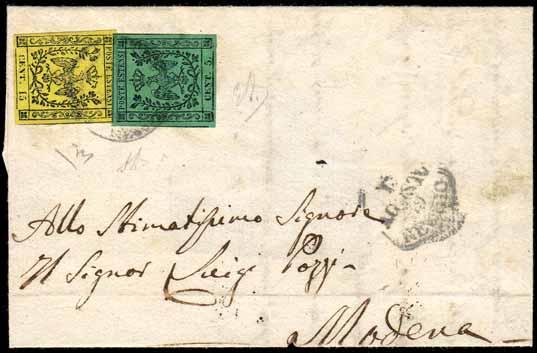 POSTE ESTENSI
CENT. 15
POSTE ESTENSI
CENT. 5.
Allo Stimatissimo Signore
Il Signor Luigi Pozzi
Modena